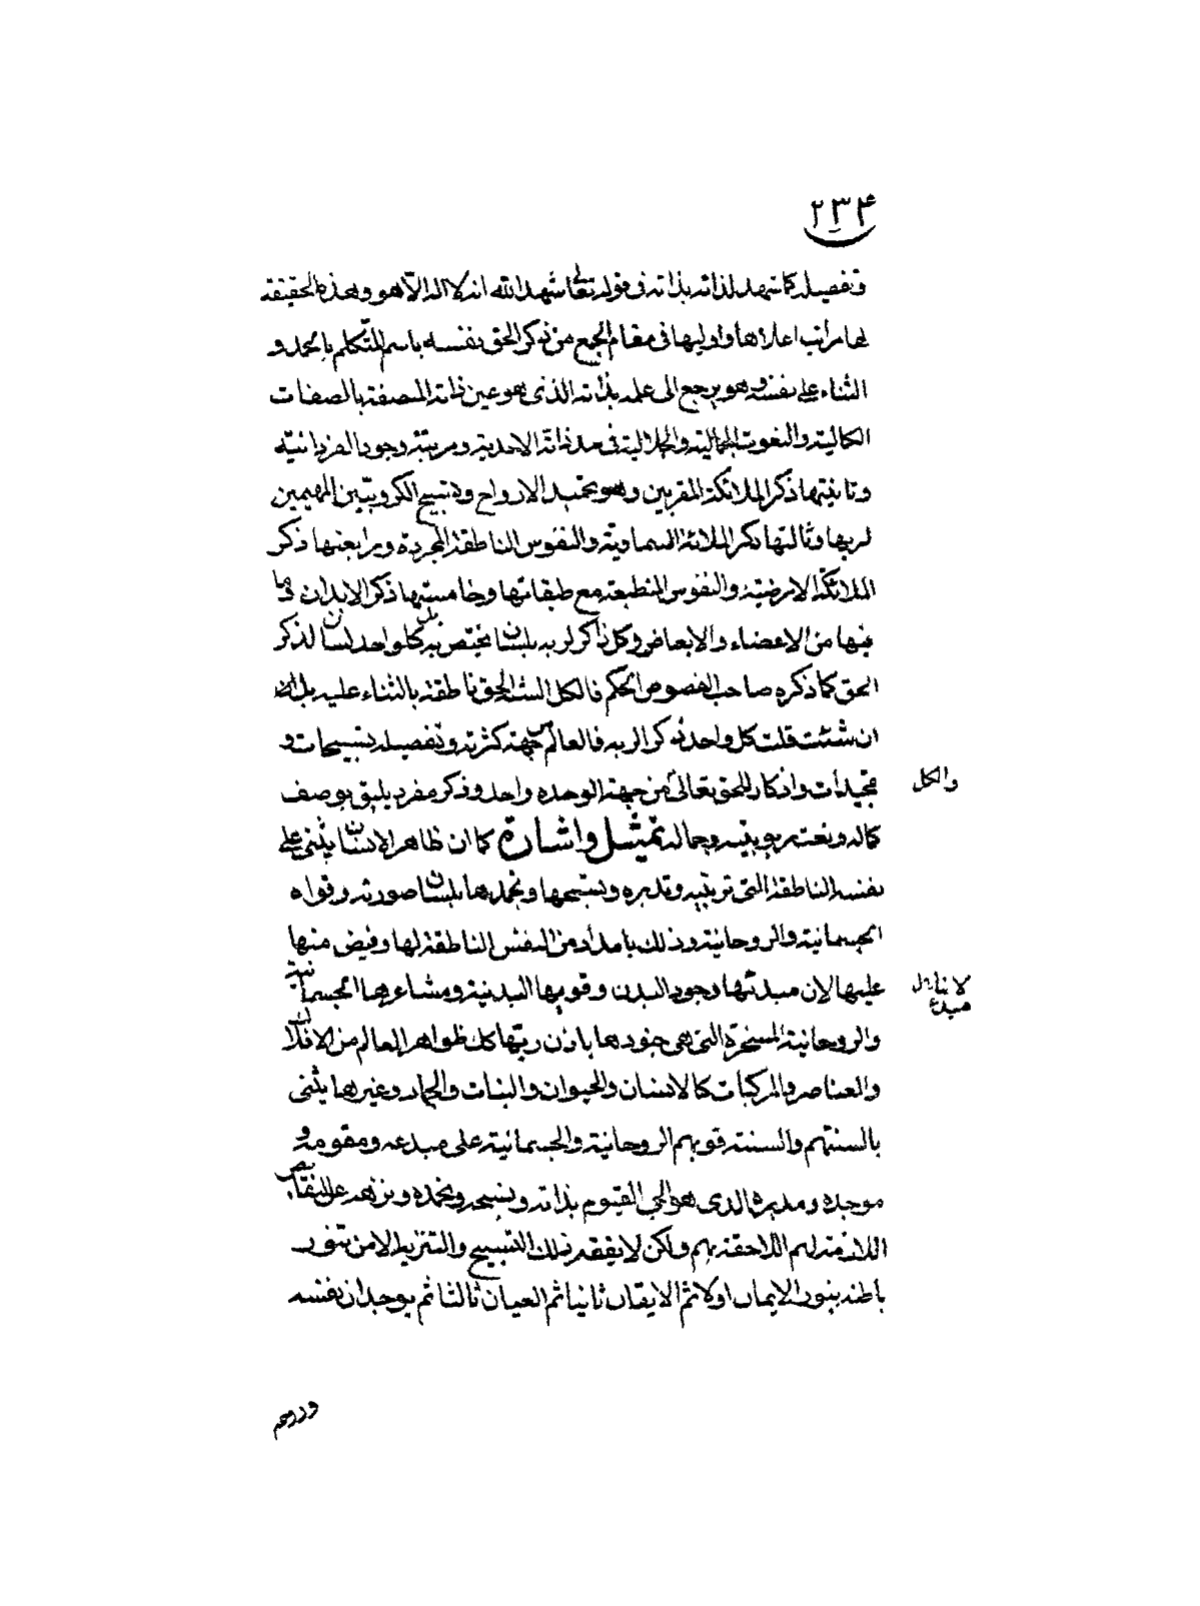 ۲۳۴
وتفصيله كما شهد لذاته بذاته فى قوله تعالى شهد الله انه لا اله الّا هو وبهذه الحقيقة
لها مراتب اعلاها واوليها فى مقام الجمع من ذكر الحق نفسه باسم المتكلم بالحمد و
الثناء على نفسه وهو يرجع الى علمه بذاته الذى هو عين ذاته المتصفة بالصفات
الكمالية والنعوت الجمالية والجلالية فى حد ذاته الاحدية ومرتبة وجود الفردانيّة
وثانيتها ذكر الملائكة المقربين وهو تحميد الارواح وتسبيح الكروبيّين المهيمين
لربها وثالثها ذكر الملائكة السماوية والنفوس الناطقة المجردة ورابعتها ذكر
الملائكة الارضية والنفوس المنطبعة مع طبقاتها وخامستها ذكر الابدان وما
فيها من الاعضاء والابعاض وكل ذاكر لربه بلسان يختص به بل كل واحد لسان لذكر
الحق كما ذكره صاحب الفصوص الحكم فالكل السنة الحق ناطقة بالثناء عليه بل
ان شئت قلت كل واحد ذكر لربه فالعالم من جهة كثرته وتفصيله تسبيحات و
تمجيدات واذكار للحق تعالى من جهة الوحده واحد وذكر مفرد يليق بوصف
والكل
كماله ونعت ربوبيّته وجماله تمثيل واشارة كما ان ظاهر الانسان يثنى على
نفسه الناطقة التى تربيه وتدبره ويسبحها ويحمدها بلسان صورته وقواه
الجسمانية والروحانية وذلك بامداد من النفس الناطقة لها وفيض منها
عليها لان مبدئها وجود البدن وقويها البدنية ومشاعرها الجسمانية
لانها مبدع
والروحانية المسخرة التى هى جنودها باذن ربّها كك ظواهر العالم من الافلاك
والعناصر والمركبات كالانسان والحيوان والنبات والجماد وغيرها يثنى
بالسنتهم والسنة قويهم الروحانية والجسمانية على مبدعه ومقومه و
موجده ومدبره الذى هو الحى القيوم بذاته ويسبحه ويحمده وينزهه عن النقائص
اللازمة لهم اللاحقة بهم ولكن لا يفقه ذلك التسبيح والتنزيه الا من تنور
باطنه بنور الايمان اولا ثم الايقان ثانيا ثم العيان ثالثا ثم بوجدان نفسه
وروحه